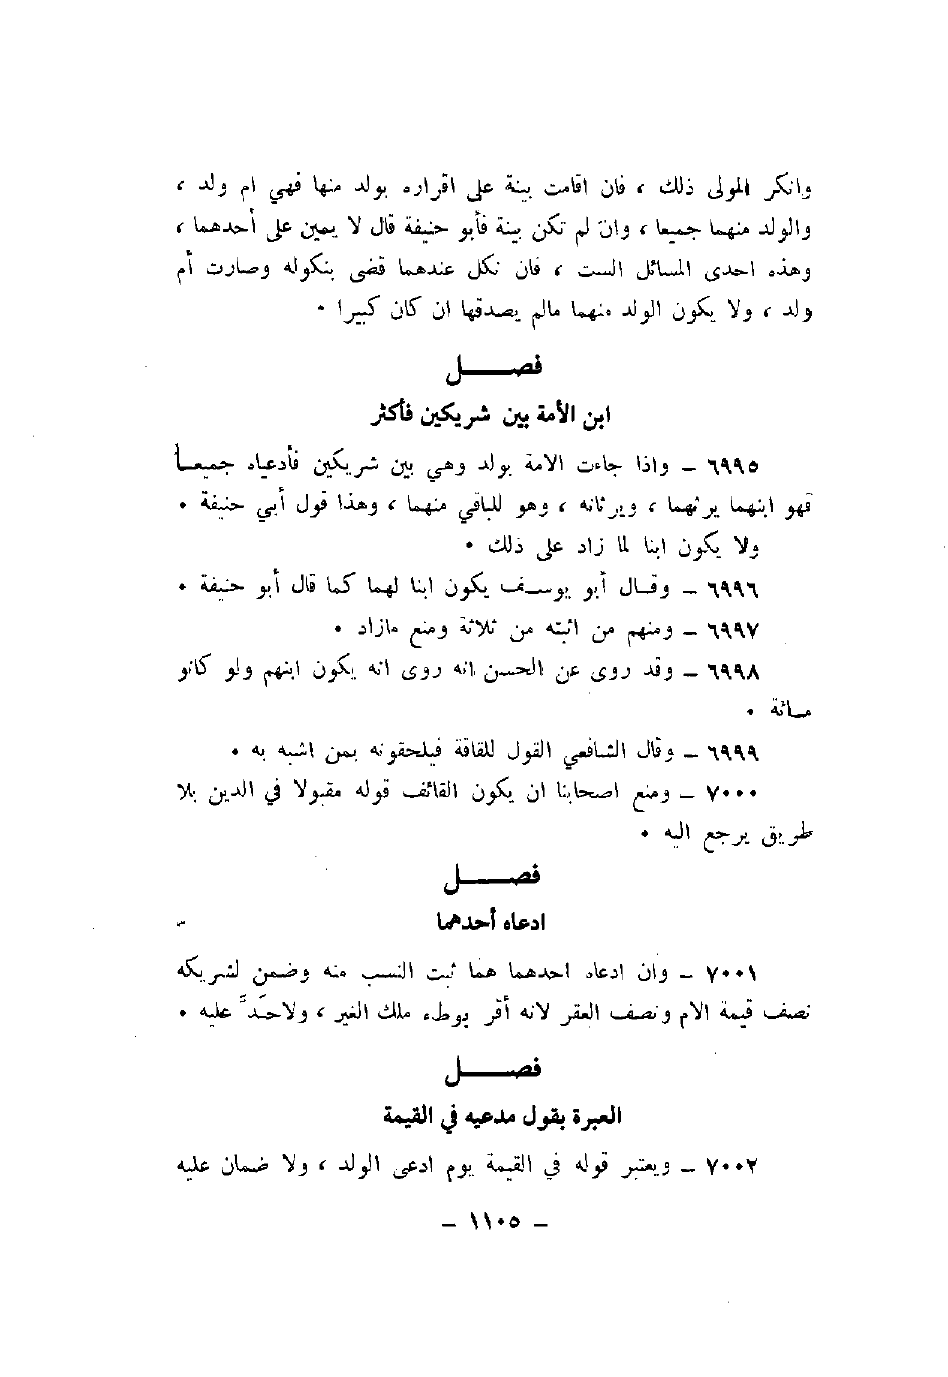 وانكر المولى ذلك ، فان اقامت بينة على اقراره بولد منها فهي ام ولد ،
والولد منهما جميعا ، وان لم تكن بينة فأبو حنيفة قال لا يمين على أحدهما ،
وهذه احدى المسائل الست ، فان نكل عندهما قضى بنكوله وصارت أم
ولد ، ولا يكون الولد منهما مالم يصدقها ان كان كبيرا •
فصـــــل
ابن الأمة بين شريكين فأكثر
٦٩٩٥ – واذا جاءت الامة بولد وهي بين شريكين فأدعياه جميعـا
فهو ابنهما يرثهما ، ويرثانه ، وهو للباقي منهما ، وهذا قول أبي حنيفة •
ولا يكون ابنا لما زاد على ذلك •
٦٩٩٦ – وقـال أبو يوسـف يكون ابنا لهما كما قال أبو حنيفة •
٦٩٩٧ – ومنهم من اثبته من ثلاثة ومنع مازاد •
٦٩٩٨ – وقد روى عن الحسن انه روى انه يكون ابنهم ولو كانو
مـائة •
٦٩٩٩ – وقال الشافعي القول للقافة فيلحقونه بمن اشبه به •
٧٠٠٠ – ومنع اصحابنا ان يكون القائف قوله مقبولا في الدين بلا
طريق يرجع اليه •
فصـــــل
ادعاه أحدهما
٧٠٠١ – وان ادعاه احدهما هما ثبت النسب منه وضمن لشريكه
نصف قيمة الام ونصف العقر لانه أقر بوطء ملك الغير ، ولاحَدَّ عليه •
فصـــــل
العبرة بقول مدعيه في القيمة
٧٠٠٢ – ويعتبر قوله في القيمة يوم ادعى الولد ، ولا ضمان عليه
– ١١٠٥ –